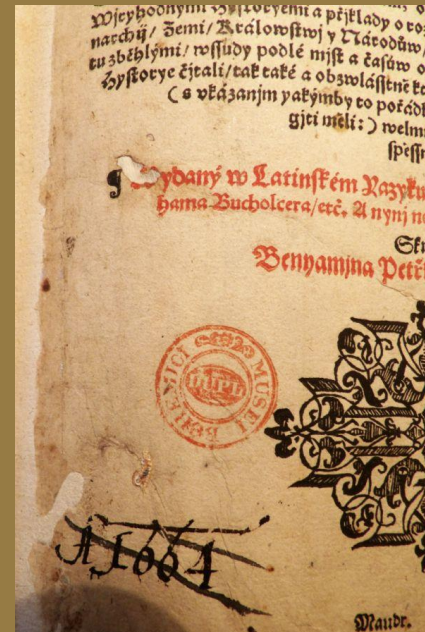 Wjryhodnými Hystoryemi a přjklady o roz
narchij / Zemi / Králowstwj y Národůw/
tu zběhlými / wssudy podlé mjst a časůw o
Hystorye čjtali/ tak také a obzwlásstně k
(s vkázanjm yakýmby to pořádk
gjti měli:) welm
spěssn
¶ Wydaný w Latinském Yazyku
hama Bucholcera/etč. A nynj n
Skr
Benyamjna Petř
MUSEI BOHEMICI
A 1664
Maudr.